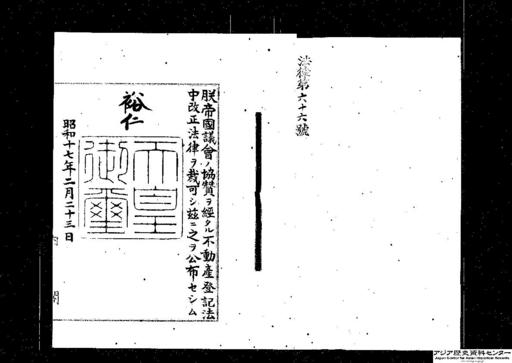 法律第六十六號
朕帝國議會ノ協贊ヲ經タル不動產登記法
中改正法律ヲ裁可シ茲ニ之ヲ公布セシム
裕仁
天皇
御璽
昭和十七年二月二十三日
内閣
アジア歴史資料センター
Japan Center for Asian Historical Records